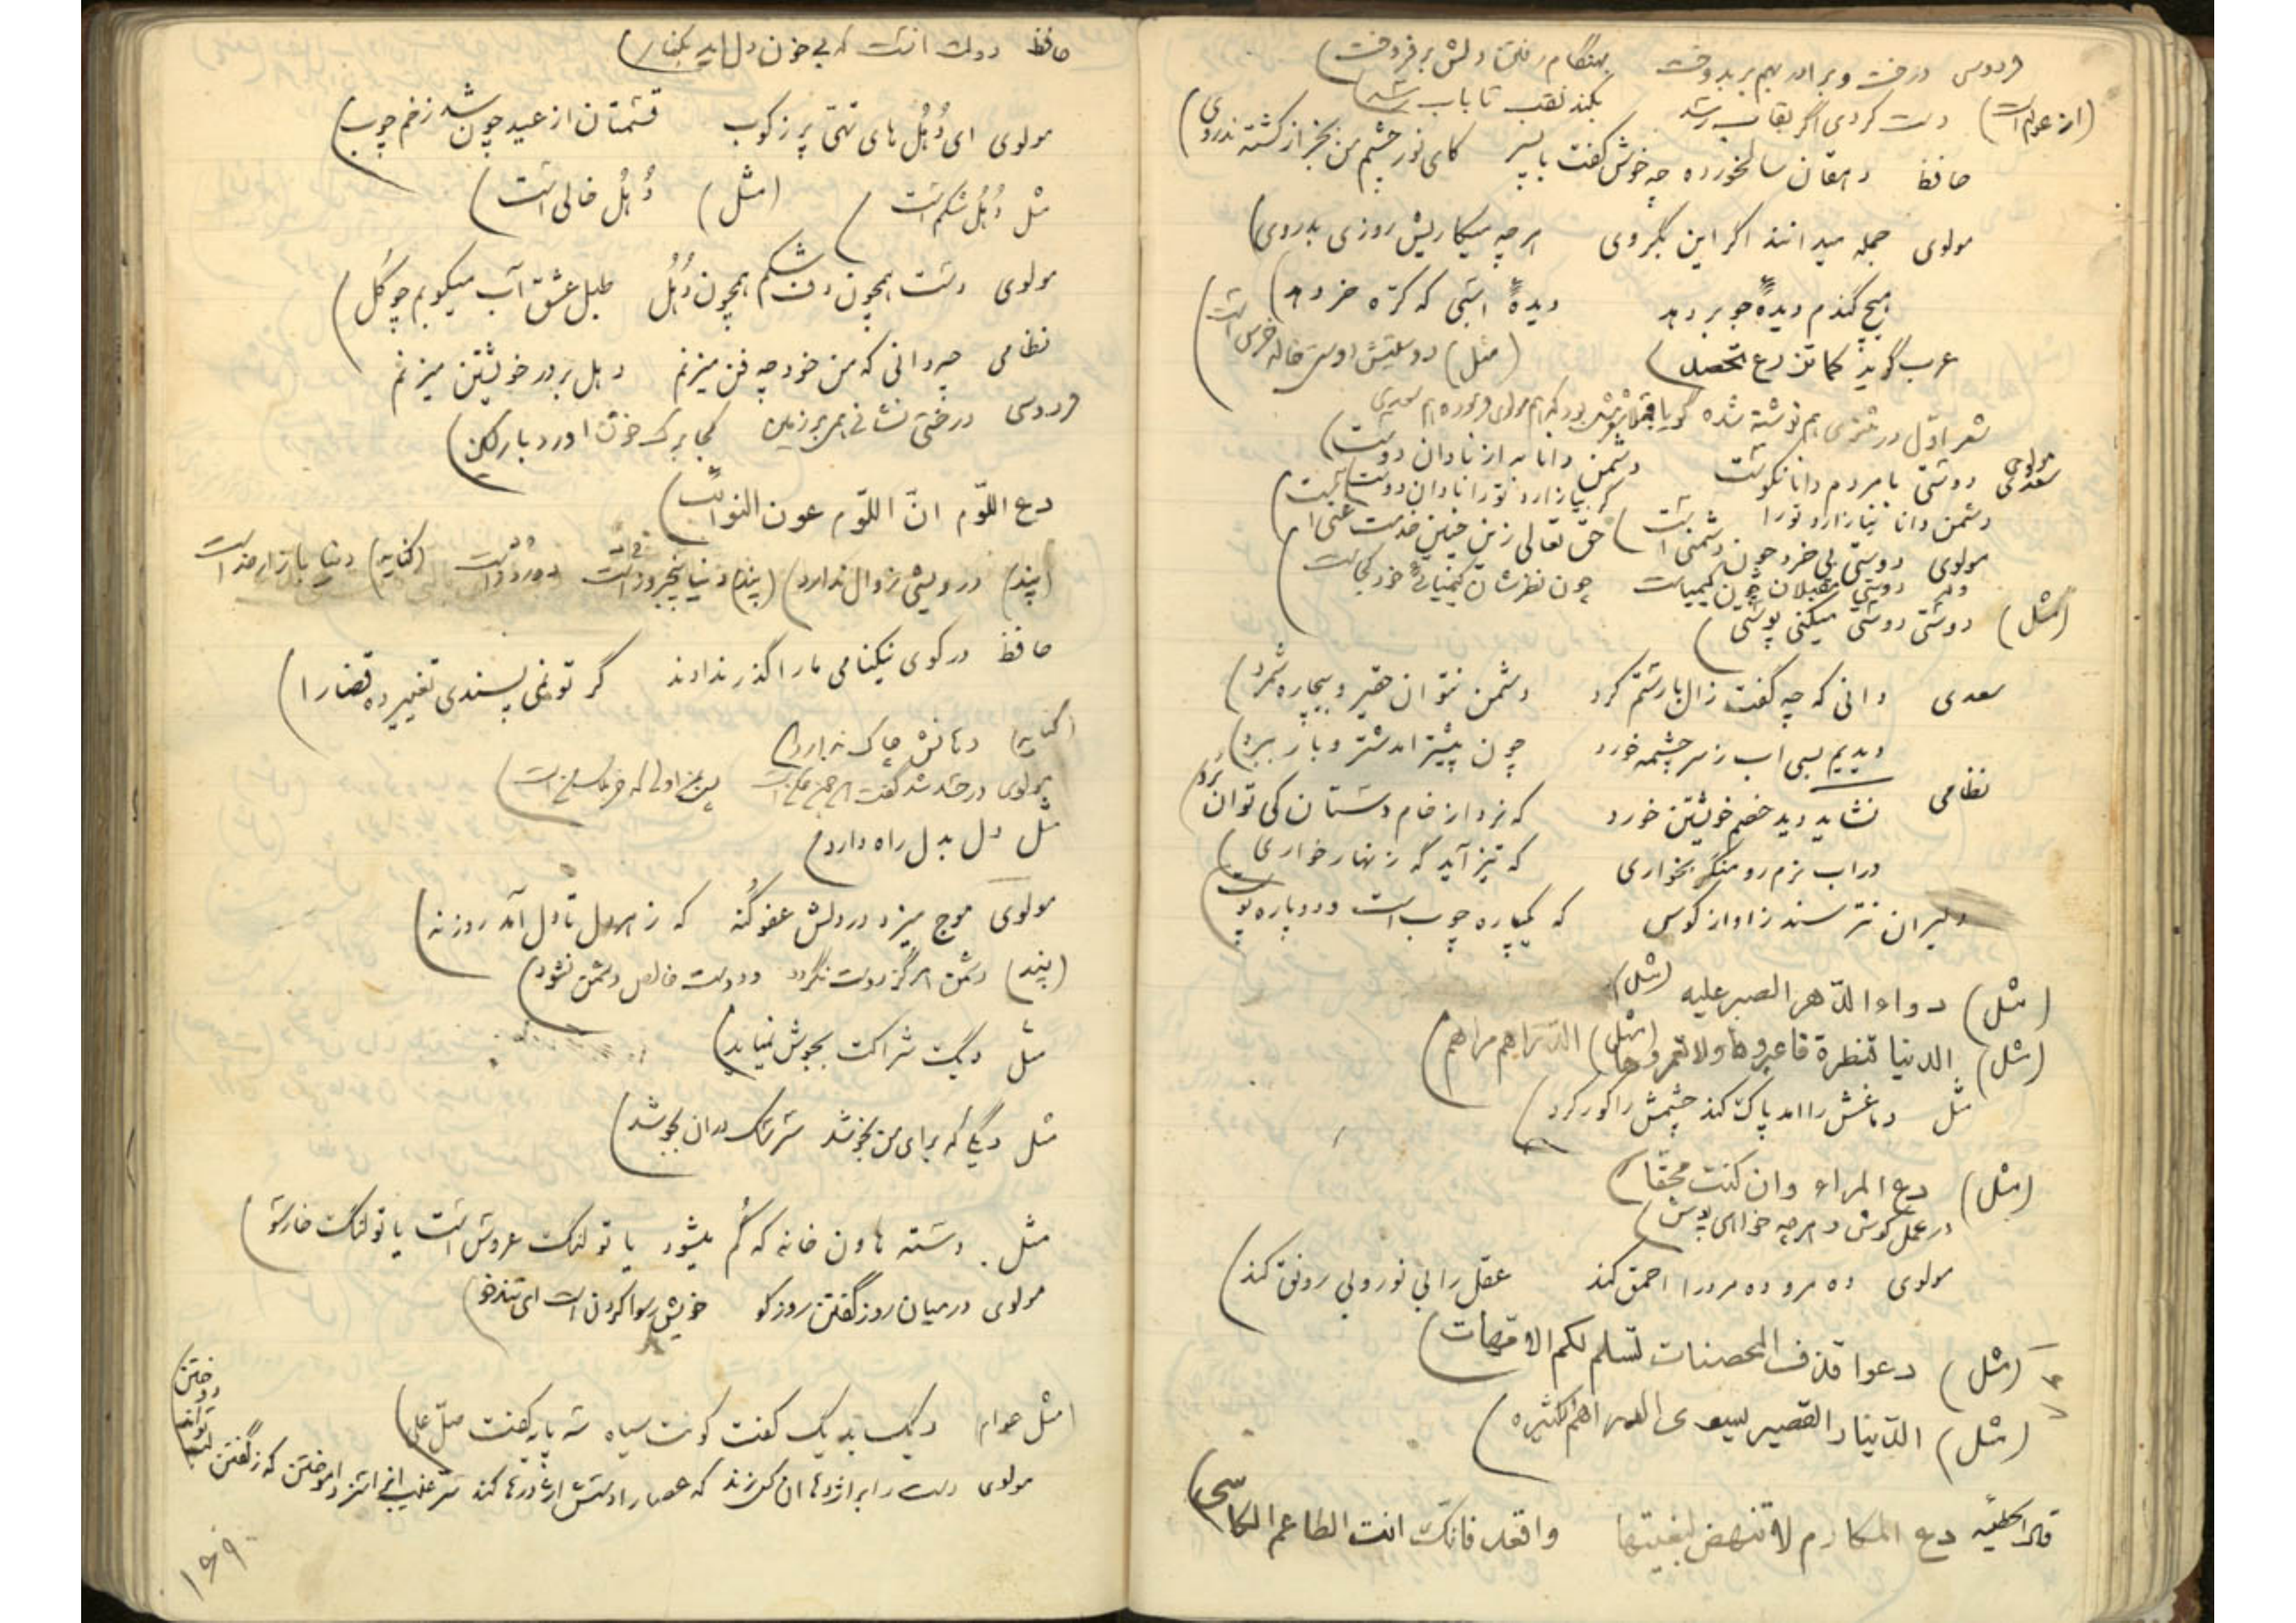 فردوسی درخت و برادر بهم بر بدوخت بهنگام رفتن دلش برفروخت
(از عوام است) دست کردی اگر بقاب رشد بکند نقب تا باب رشد
حافظ دهقان سالخورده چه خوش گفت با پسر کای نور چشم من بجز از کشته ندروی
مولوی جمله میدانند اگر این بگروی هرچه میکاریش روزی بدروی
هیچ گندم دیدهٔ جو بر دهد دیدهٔ اسبی که کرّه خر دهد
عرب گوید کما تزرع تحصد (مثل) دوستیش دوستی خاله خرس است
شعر اوّل در مثنوی هم نوشته شده گویا هم مولوی فرموده هم سعدی
مولوی سعدی دوستی با مردم دانا نکوست دشمن دانا به از نادان دوست
دشمن دانا نیازارد تو را گر بیازارد تو را نادان دوست
مولوی دوستی بی خرد چون دشمنی است حق تعالی زین چنین خدمت غنی است
وله دوستی مقبلان چون کیمیاست چون نظرشان کیمیائی خود کجاست
(مثل) دوستی دوستی میکنی پوستی
سعدی دانی که چه گفت زال با رستم گرد دشمن نتوان حقیر و بیچاره شمرد
دیدیم بسی آب ز سر چشمه خورد چون بیشتر آمد شتر و بار ببرد
نظامی نشاید دید خصم خویشتن خورد که نرد از خام دستان کی توان برد
در آب نرم رو منگر بخواری که تیز آید گه زنهار خواری
دلیران نترسند ز آواز کوس که یکپاره چوب است و دو پاره پوست
(مثل) دواء الدّهر الصبر علیه (مثل)
(مثل) الدنیا قنطرة فاعبروها ولا تعمروها (مثل) الدّراهم مراهم
مثل دماغش را آمد پاک کند چشمش را کور کرد
(مثل) دع المراء وان کنت محقّا
در عمل کوش و هر چه خواهی پوش
مولوی ده مرو ده مرد را احمق کند عقل را بی نور و بی رونق کند
(مثل) دعوا قذف المحصنات تسلم لکم الامّهات
(مثل) الدّینار القصیر یسوی الدراهم کثیره
قال الحطیئه دع المکارم لا تنهض لبغیتها واقعد فانّک انت الطاعم الکاسی
حافظ دولت آنست که بی خون دل آید بکنار
مولوی ای دُهُل های تهی پر ز کوب قسمتان از عید چون شد زخم چوب
مثل دُهُل شکم است (مثل) دُهُل خالی است
مولوی دست همچون دف شکم همچون دُهُل طبل عشق آب میکوبم چو گل
نظامی چه دانی که من خود چه فن میزنم دهل بر در خویشتن میزنم
فردوسی درختی نشانی همی بر زمین کجا برگ خون آورد بار کین
دع اللّوم انّ اللّوم عون النوائب
(پند) درویشی زوال ندارد (پند) دنیا پنجروز است دو روز است (کنایه) دنیا بازار
حافظ در کوی نیکنامی ما را گذر ندادند گر تو نمی پسندی تغییر ده قضا را
(کنایه) دهانش چاک ندارد
مولوی در حسد شد گفت
مثل دل بدل راه دارد
مولوی موج میزد در دلش عفو گنه که ز هر دل تا دل آمد روزنه
(پند) دشمن هرگز دوست نگردد و دوست خالص دشمن نشود
مثل دیگ شراکت بجوش نمیاید
مثل دیگی که برای من نجوشد سر سگ در آن بجوشد
مثل دسته هاون خانه که گم میشود یا تو لنگ عروش است یا تو لنگ خارسو
مولوی در میان روز گفتن روز کو خویش رسوا کردن است ای تندخو
(مثل عوام) دیگ به دیگ گفت کونت سیاه سه پایه گفت صلّ علی
مولوی دست را بر اژدها آن کس زند که عصا را دستش اژدرها کند سرّ غیب آنرا سزد آموختن که ز گفتن لب تواند دوختن
۱۶۹